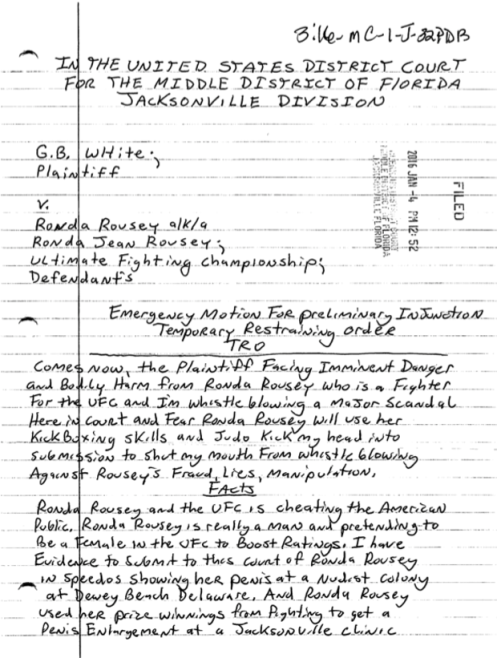 3:16-mc-1-J-32PDB
IN THE UNITED STATES DISTRICT COURT
FOR THE MIDDLE DISTRICT OF FLORIDA
JACKSONVILLE DIVISION
G.B. WHite;
Plaintiff
V.
Ronda Rousey a/k/a
Ronda Jean Rousey;
Ultimate Fighting Championship;
Defendant's
FILED
2016 JAN -4 PM 12:52
JACKSONVILLE FLORIDA
Emergency Motion For preliminary INJunction
Temporary Restraining order
TRO
Comes Now, the Plaintiff Facing Imminent Danger
and Bodily Harm from Ronda Rousey who is a Fighter
For the UFC and I'm whistle blowing a Major Scandal
Here in Court and Fear Ronda Rousey will use her
KickBoxing skills and Judo Kick my head into
submission to shut my mouth From whistle blowing
Against Rousey's Fraud, Lies, Manipulation.
FACTS
Ronda Rousey and the UFC is cheating the American
Public. Ronda Rousey is really a man and pretending to
Be a Female in the UFC to Boost Ratings. I have
Evidence to Submit to this court of Ronda Rousey
in speedos showing her penis at a Nudist colony
at Dewey Beach Delaware. And Ronda Rousey
used her prize winnings from Fighting to get a
Penis Enlargement at a Jacksonville clinic